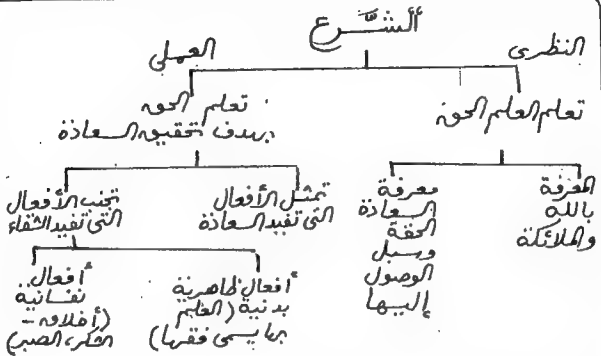 ألشَّرع
النظرى
العملى
تعلم العلم الحق
تعلم الحق
بهدف تحقيق السعادة
المعرفة
بالله
والملائكة
معرفة
السعادة
الحقة
وسبل
الوصول
إليها
تمثل الأفعال
التى تفيد السعادة
تجنب الأفعال
التى تفيد الشقاء
أفعال ظاهرية
بدنية (العلم
بها يسمى فقها)
أفعال
نفسانية
(أخلاق -
الشكر، الصبر)